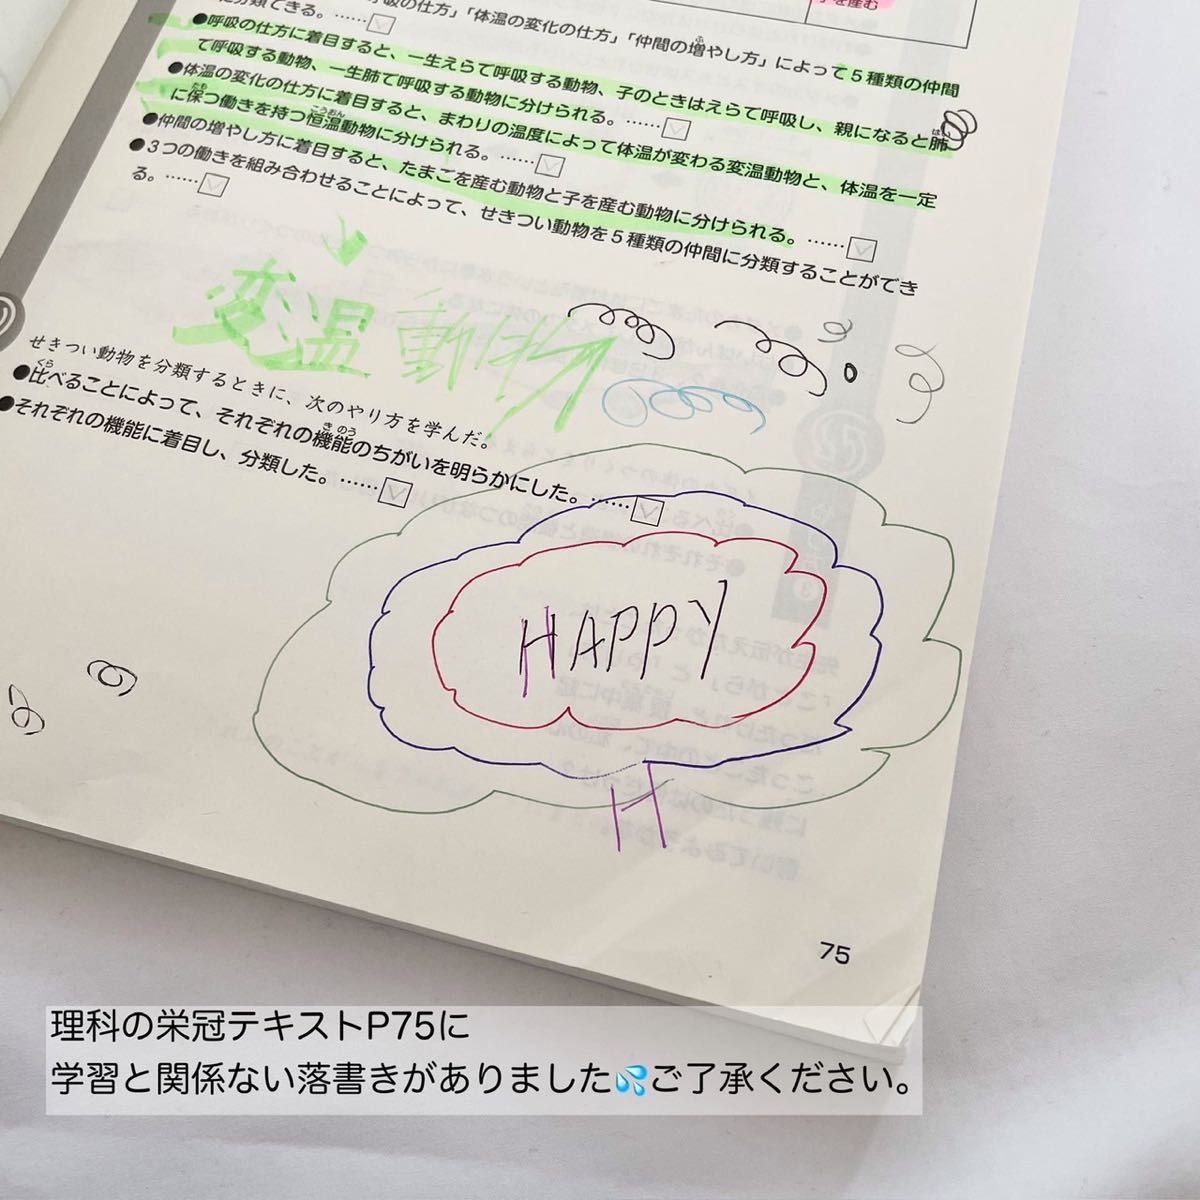 を産む
に分類できる。……
の仕方」「体温の変化の仕方」「仲間の増やし方」によって5種類の仲間
●呼吸の仕方に着目すると、一生えらで呼吸する動物、子のときはえらで呼吸し、親になると肺
で呼吸する動物、一生肺で呼吸する動物に分けられる。……
●体温の変化の仕方に着目すると、まわりの温度によって体温が変わる変温動物と、体温を一定
に保つ働きを持つ恒温動物に分けられる。……
●仲間の増やし方に着目すると、たまごを産む動物と子を産む動物に分けられる。……
●3つの働きを組み合わせることによって、せきつい動物を5種類の仲間に分類することができ
る。……
変温動物
せきつい動物を分類するときに、次のやり方を学んだ。
●比べることによって、それぞれの機能のちがいを明らかにした。……
●それぞれの機能に着目し、分類した。……
HAPPY
H
75
理科の栄冠テキストP75に
学習と関係ない落書きがありました💦ご了承ください。